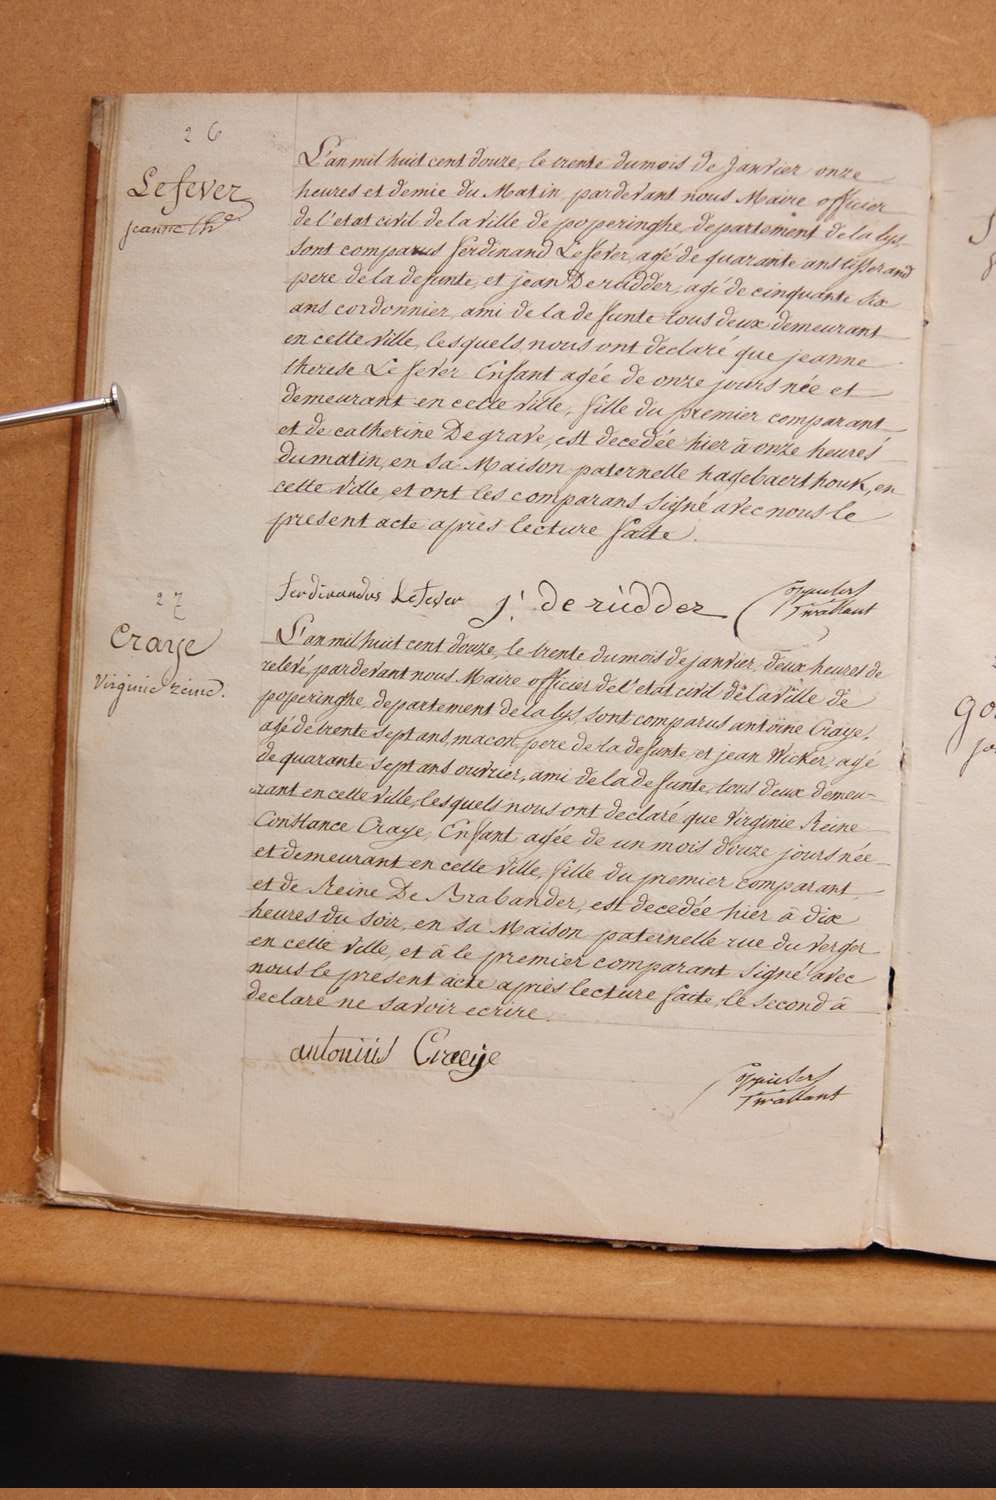 26
Lefever
jeanne th.e
L'an mil huit cent douze, le trente du mois de Janvier onze
heures et demie du Matin, pardevant nous Maire officier
de l'etat civil de la ville de poperinghe, departement de la lys,
sont comparus Ferdinand Lefever, agé de quarante ans tisserand
pere de la defunte, et jean De rudder, agé de cinquante six
ans cordonnier, ami de la defunte tous deux demeurant
en cette Ville, lesquels nous ont declaré que jeanne
therese Lefever Enfant agée de onze jours née et
demeurant en cette Ville, fille du premier comparant
et de catherine Degrave, est decedée hier à onze heures
du matin, en sa Maison paternelle hagebaerthouk, en
cette Ville, et ont les comparans signé avec nous le
present acte après lecture faite.
ferdinandus Lefever j. de rudder
27
Craye
Virginie reine.
L'an mil huit cent douze, le trente du mois de janvier, deux heures de
relevé, pardevant nous Maire officier de l'etat civil de la Ville de
poperinghe, departement de la lys, sont comparus antoine Craye,
agé de trente sept ans, macon, pere de la defunte, et jean Wicker, agé
de quarante sept ans ouvrier, ami de la defunte, tous deux demeu-
rant en cette Ville, lesquels nous ont declaré que Virginie Reine
Constance Craye, Enfant agée de un mois douze jours née
et demeurant en cette Ville, fille du premier comparant,
et de Reine De Brabander, est decedée hier à dix
heures du soir, en sa Maison paternelle rue du verger
en cette Ville, et à le premier comparant signé avec
nous le present acte après lecture faite, le second à
declaré ne savoir ecrire.
antoniüs Craeije